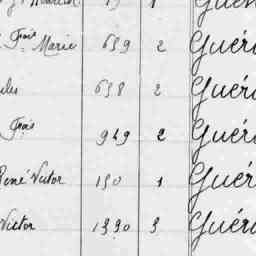 Fois Marie 659 2 Guér
ules 658 2 Guér
Fois 949 2 Guér
René Victor 150 1 Guér
Victor 1390 3 Guér